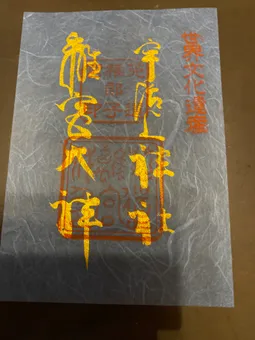 世界文化遺産
宇治上神社
離宮大神